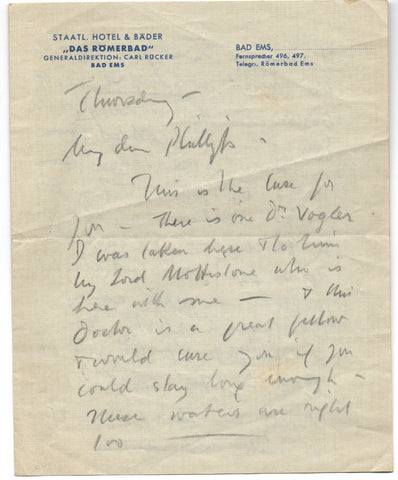 STAATL. HOTEL & BÄDER
„DAS RÖMERBAD"
GENERALDIREKTION: CARL RÜCKER
BAD EMS
BAD EMS,
Fernsprecher 496, 497.
Telegr.: Römerbad Ems
Thursday –
My dear Phillips –
This is the Cure for
you – There is one Dr. Vogler
I was taken here & to him
by Lord Mottistone who is
here with me – & this
Doctor is a great fellow
& would cure you if you
could stay long enough –
These waters are right
too